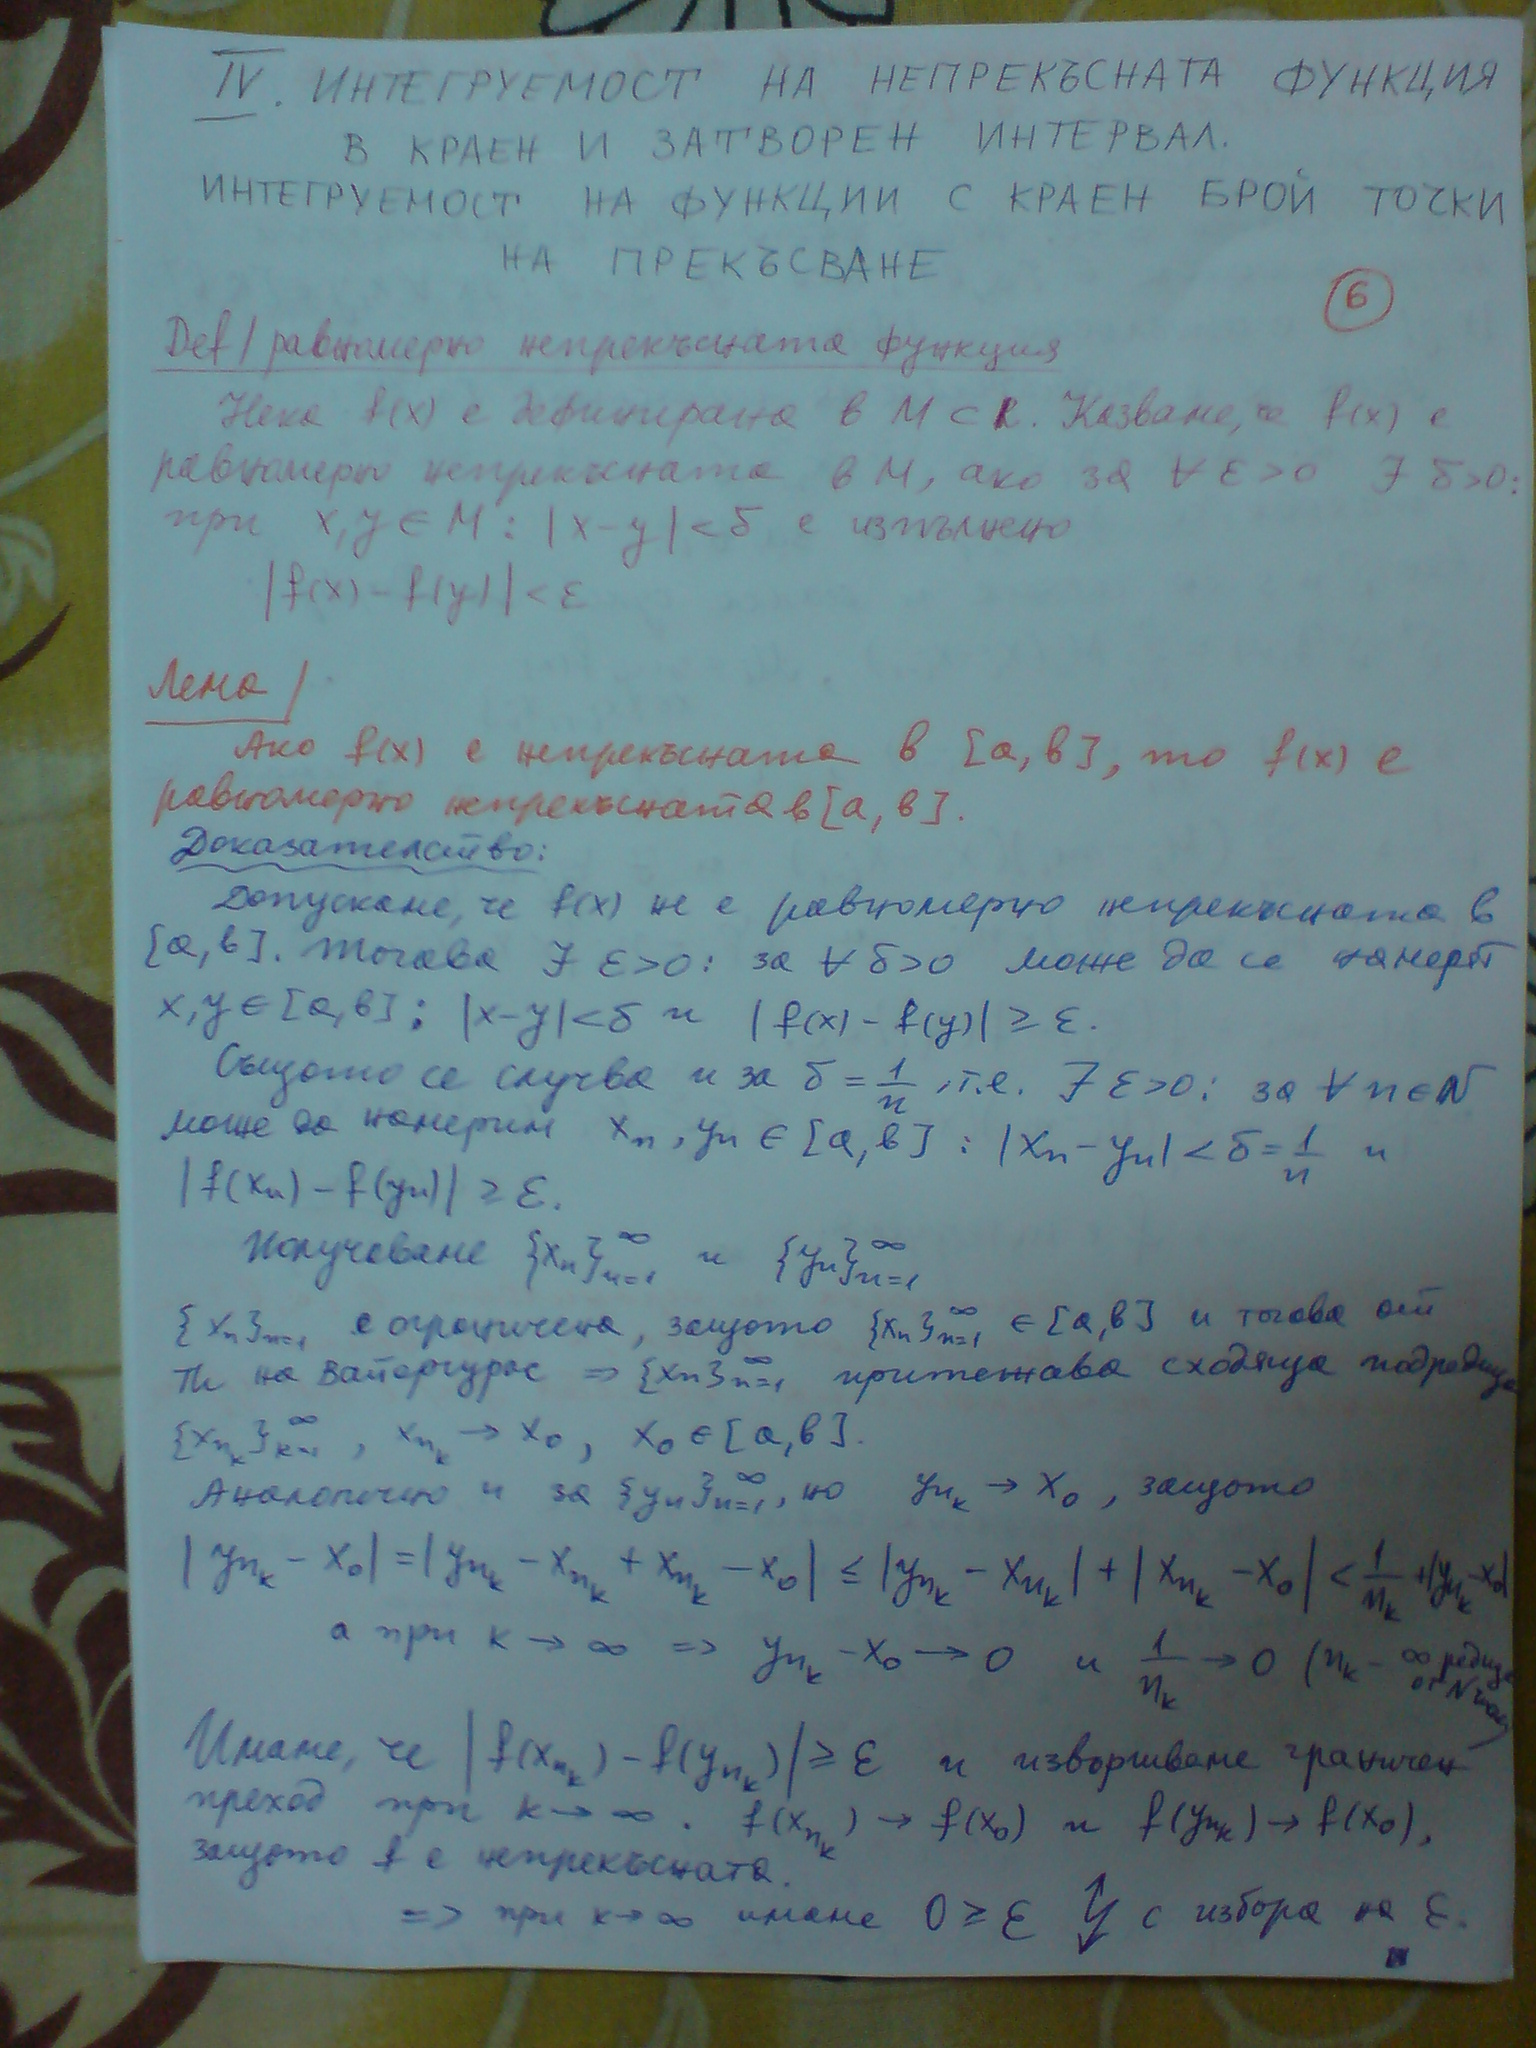 IV. ИНТЕГРУЕМОСТ НА НЕПРЕКЪСНАТА ФУНКЦИЯ
В КРАЕН И ЗАТВОРЕН ИНТЕРВАЛ.
ИНТЕГРУЕМОСТ НА ФУНКЦИИ С КРАЕН БРОЙ ТОЧКИ
НА ПРЕКЪСВАНЕ
6
Def / равномерно непрекъсната функция
Нека f(x) е дефинирана в M ⊂ R. Казваме, че f(x) е
равномерно непрекъсната в M, ако за ∀ ε>0 ∃ δ>0:
при x,y ∈ M : |x-y|<δ е изпълнено
|f(x) - f(y)| < ε
Лема /
Ако f(x) е непрекъсната в [a,b], то f(x) е
равномерно непрекъсната в [a,b].
Доказателство:
Допускаме, че f(x) не е равномерно непрекъсната в
[a,b]. Тогава ∃ ε>0: за ∀ δ>0 може да се намерят
x,y ∈ [a,b] : |x-y|<δ и |f(x) - f(y)| ≥ ε.
Същото се случва и за δ = 1/n, т.е. ∃ ε>0: за ∀ n ∈ N
може да намерим xₙ, yₙ ∈ [a,b] : |xₙ - yₙ| < δ = 1/n и
|f(xₙ) - f(yₙ)| ≥ ε.
Получаваме {xₙ}_{n=1}^∞ и {yₙ}_{n=1}^∞
{xₙ}_{n=1} е ограничена, защото {xₙ}_{n=1}^∞ ∈ [a,b] и тогава от
Th на Вайерщрас => {xₙ}_{n=1}^∞ притежава сходяща подредица
{x_{n_k}}_{k=1}^∞, x_{n_k} → x₀, x₀ ∈ [a,b].
Аналогично и за {yₙ}_{n=1}^∞, но y_{n_k} → x₀, защото
|y_{n_k} - x₀| = |y_{n_k} - x_{n_k} + x_{n_k} - x₀| ≤ |y_{n_k} - x_{n_k}| + |x_{n_k} - x₀| < 1/n_k + |y_{n_k} - x₀|
а при k → ∞ => y_{n_k} - x₀ → 0 и 1/n_k → 0 (n_k - ∞ редица
от N
Имаме, че |f(x_{n_k}) - f(y_{n_k})| ≥ ε и извършваме граничен
преход при k → ∞. f(x_{n_k}) → f(x₀) и f(y_{n_k}) → f(x₀),
защото f е непрекъсната.
=> при k → ∞ имаме 0 ≥ ε с избора на ε.